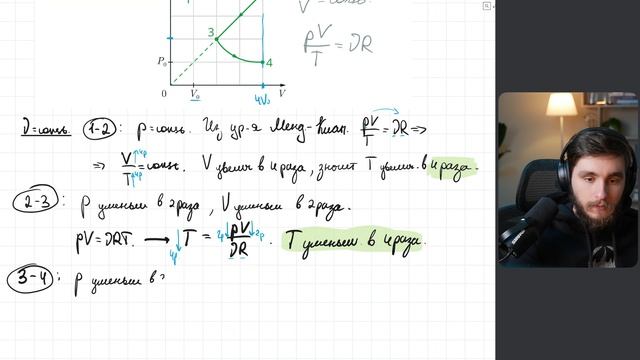 V = const.
pV/T = νR
3
4
P₀
0 V₀ 4V₀ V
ν=const. 1-2 : p=const. Из ур-я Менд-Клап. pV/T = νR ⇒
⇒ V↑4р/T↑4р = const. V увелич в 4 раза, значит T увелич. в 4 раза.
2-3 : p уменьш в 2 раза, V уменьш в 2 раза.
pV = νRT. → 4р↓ T = 2р↓ pV ↓2р / νR . T уменьш. в 4 раза.
3-4 : p уменьш в 2